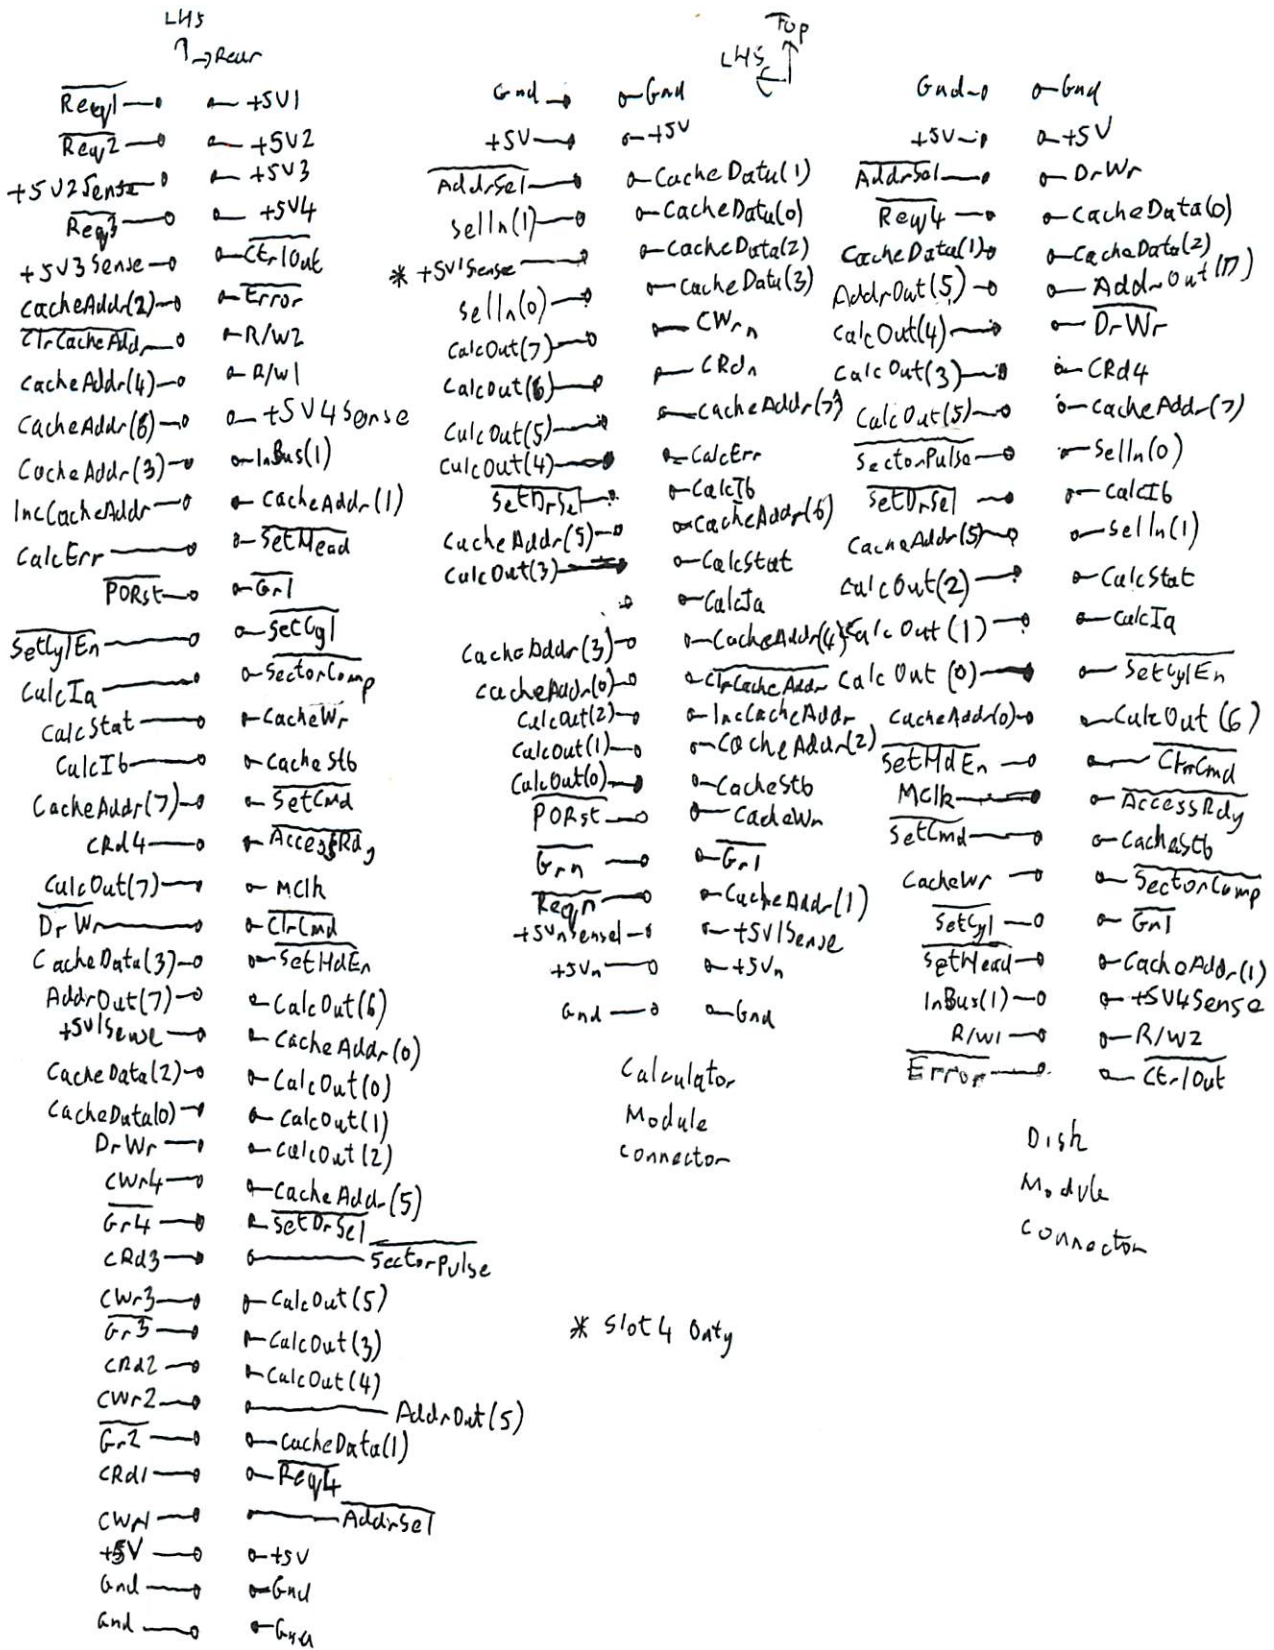 LHS
→Rear
Req1 +5V1
Req2 +5V2
+5V2Sense +5V3
Req3 +5V4
+5V3Sense CtrlOut
CacheAddr(2) Error
ClrCacheAddr R/W2
CacheAddr(4) R/W1
CacheAddr(6) +5V4Sense
CacheAddr(3) InBus(1)
IncCacheAddr CacheAddr(1)
CalcErr SetHead
PORst Gr1
SetCylEn SetCyl
CalcIa SectorComp
CalcStat CacheWr
CalcIb CacheStb
CacheAddr(7) SetCmd
CRd4 AccessRdy
CalcOut(7) MClk
DrWr ClrCmd
CacheData(3) SetHdEn
AddrOut(7) CalcOut(6)
+5V1Sense CacheAddr(0)
CacheData(2) CalcOut(0)
CacheData(0) CalcOut(1)
DrWr CalcOut(2)
CWr4 CacheAddr(5)
Gr4 SetDrSel
CRd3 SectorPulse
CWr3 CalcOut(5)
Gr3 CalcOut(3)
CRd2 CalcOut(4)
CWr2 AddrOut(5)
Gr2 CacheData(1)
CRd1 Req4
CWr1 AddrSel
+5V +5V
Gnd Gnd
Gnd Gnd
Top
LHS
Gnd Gnd
+5V +5V
AddrSel CacheData(1)
SelIn(1) CacheData(0)
* +5V1Sense CacheData(2)
SelIn(0) CacheData(3)
CalcOut(7) CWrn
CalcOut(6) CRdn
CalcOut(5) CacheAddr(7)
CalcOut(4) CalcErr
SetDrSel CalcIb
CacheAddr(5) CacheAddr(6)
CalcOut(3) CalcStat
CalcIa
CacheAddr(3) CacheAddr(4)
CacheAddr(0) ClrCacheAddr
CalcOut(2) IncCacheAddr
CalcOut(1) CacheAddr(2)
CalcOut(0) CacheStb
PORst CacheWr
Grn Gr1
Reqn CacheAddr(1)
+5VnSense +5V1Sense
+5Vn +5Vn
Gnd Gnd
Calculator
Module
connector
* Slot 4 Only
Gnd Gnd
+5V +5V
AddrSel DrWr
Req4 CacheData(0)
CacheData(1) CacheData(2)
AddrOut(5) AddrOut(7)
CalcOut(4) DrWr
CalcOut(3) CRd4
CalcOut(5) CacheAddr(7)
SectorPulse SelIn(0)
SetDrSel CalcIb
CacheAddr(5) SelIn(1)
CalcOut(2) CalcStat
CalcOut(1) CalcIa
CalcOut(0) SetCylEn
CacheAddr(0) CalcOut(6)
SetHdEn ClrCmd
MClk AccessRdy
SetCmd CacheStb
CacheWr SectorComp
SetCyl Gr1
SetHead CacheAddr(1)
InBus(1) +5V4Sense
R/W1 R/W2
Error CtrlOut
Disk
Module
connector